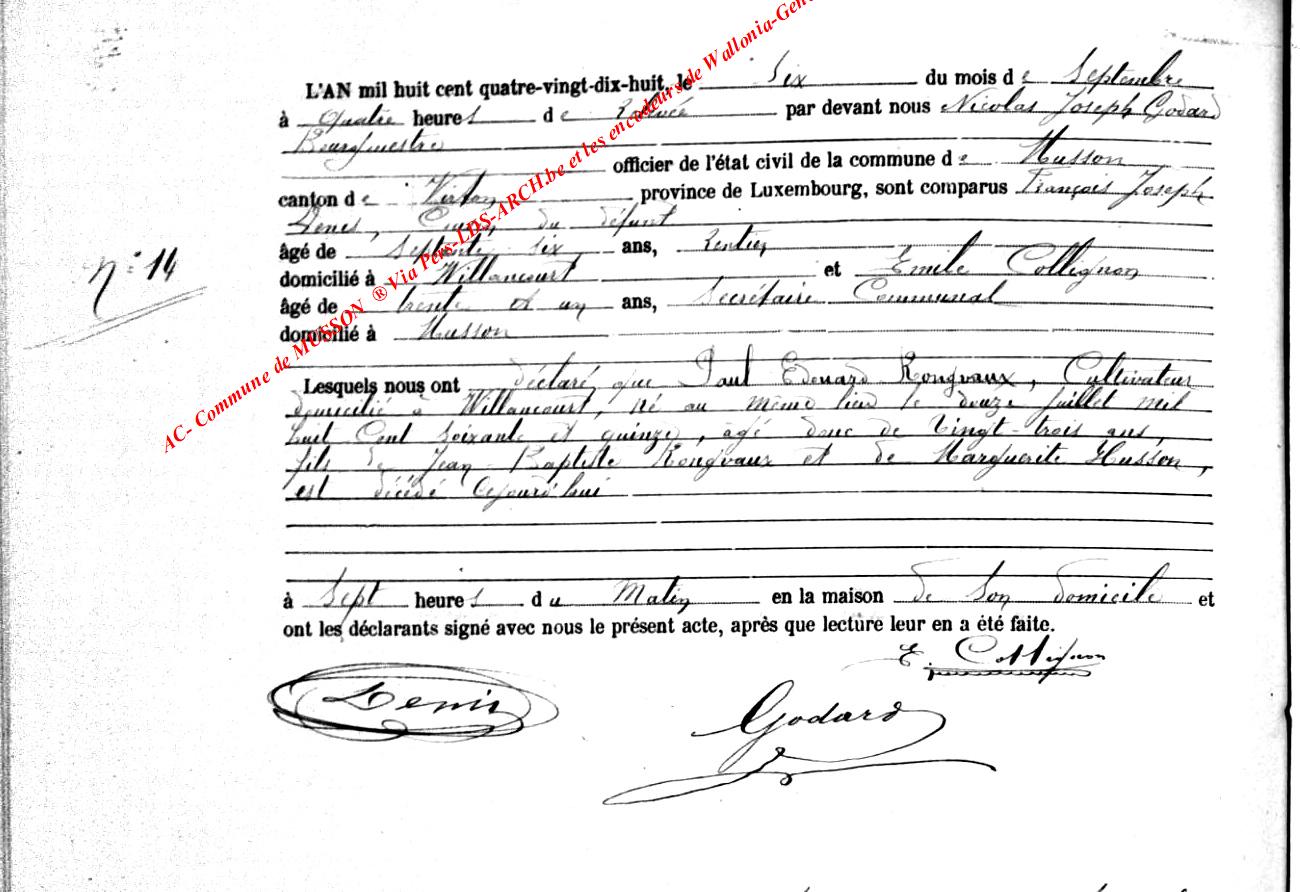 AC- Commune de MUSSON ® Via Pers-LDS-ARCH.be et les encodeurs de Wallonia-Gen
L'AN mil huit cent quatre-vingt-dix-huit, le Six du mois de Septembre
à quatre heures de Relevée par devant nous Nicolas Joseph Godard
Bourgmestre
officier de l'état civil de la commune de Musson
canton de Virton province de Luxembourg, sont comparus François Joseph
Denis, du défunt
âgé de Septante six ans, Rentier
domicilié à Willancourt et Emile Collignon
âgé de trente et un ans, Secrétaire Communal
domicilié à Musson
N° 14
Lesquels nous ont déclaré que Paul Edouard Rongvaux, Cultivateur
domicilié à Willancourt, né au même lieu le douze Juillet mil
huit Cent Soixante et quinze, âgé donc de Vingt-trois ans,
fils de Jean Baptiste Rongvaux et de Marguerite Husson,
est décédé aujourd'hui
à Sept heures du Matin en la maison de Son domicile et
ont les déclarants signé avec nous le présent acte, après que lecture leur en a été faite.
E. Collignon
Denis
Godard